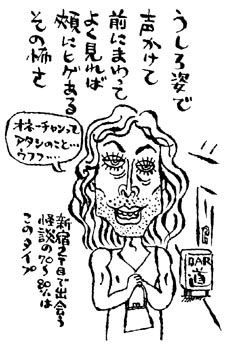 うしろ姿で
声かけて
前にまわって
よく見れば
頬にヒゲある
その怖さ
オネーチャンって
アタシのこと…
ウフフ…
新宿2丁目で出会う
怪談の70~80%は
このタイプ
BAR
道